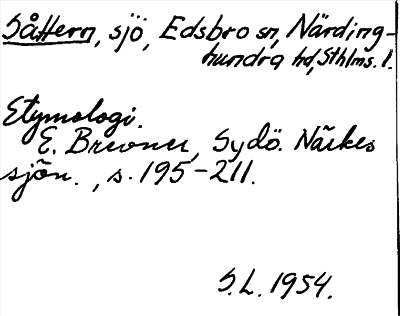 Såttern, sjö, Edsbro sn, Närding-
hundra hd, Sthlms. l.
Etymologi.
E. Brevner, Sydö. Närkes
sjön., s. 195-211.
S.L. 1954.